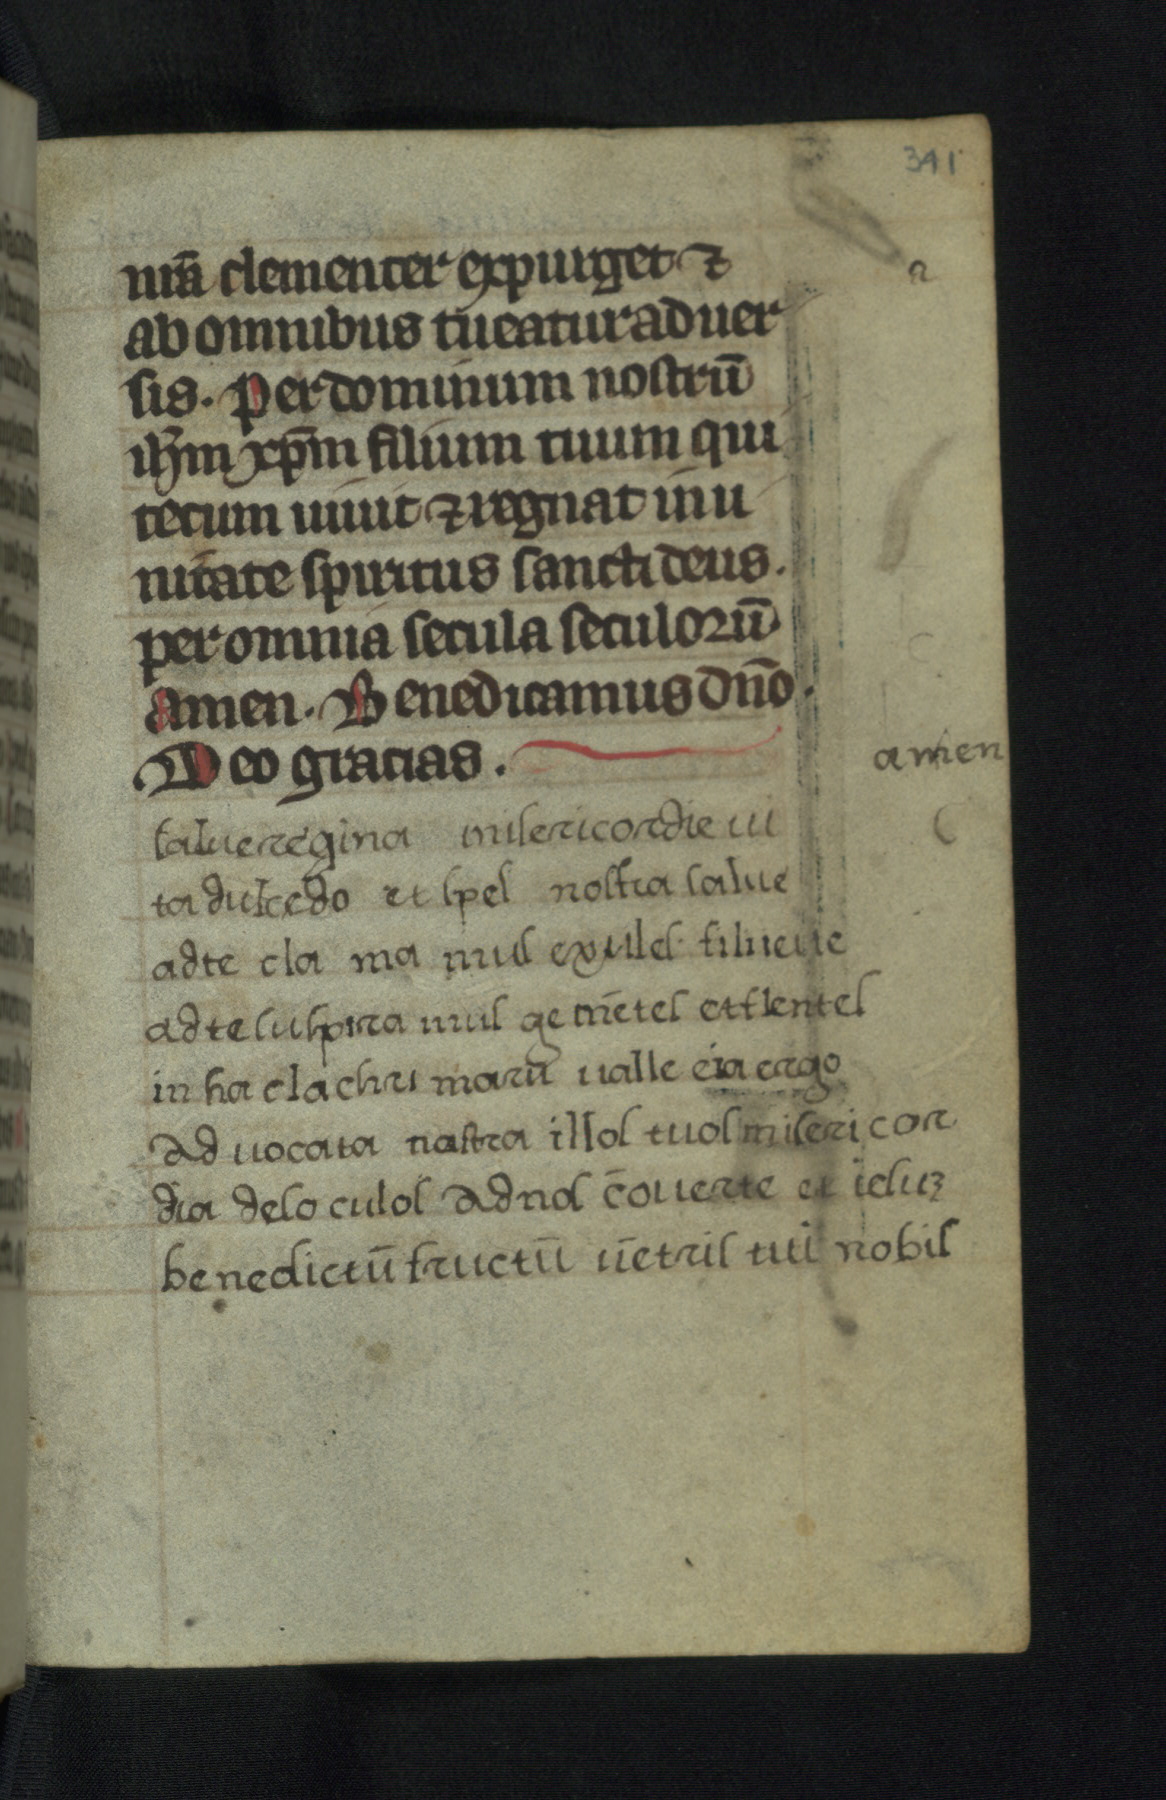 341
nr̄a clementer expurget ⁊
a
ab omnibus tueatur aduer
sis. Per dominum nostrū
ih̄m xp̄m filium tuum qui
tecum uiuit ⁊ regnat in u
nitate spiritus sancti deus.
per omnia secula seculorū
Amen. Benedicamus dn̄o.
Deo gracias.
amen
salue regina misericordie ui
ta dulcedo et spes nostra salue
ad te cla ma mus exules filii eue
ad te suspira mus gemētes et flentes
in hac lachri marū ualle eia ergo
aduocata nostra illos tuos misericor
dia des oculos ad nos cōuerte et iesuz
benedictū fructū uētris tui nobis